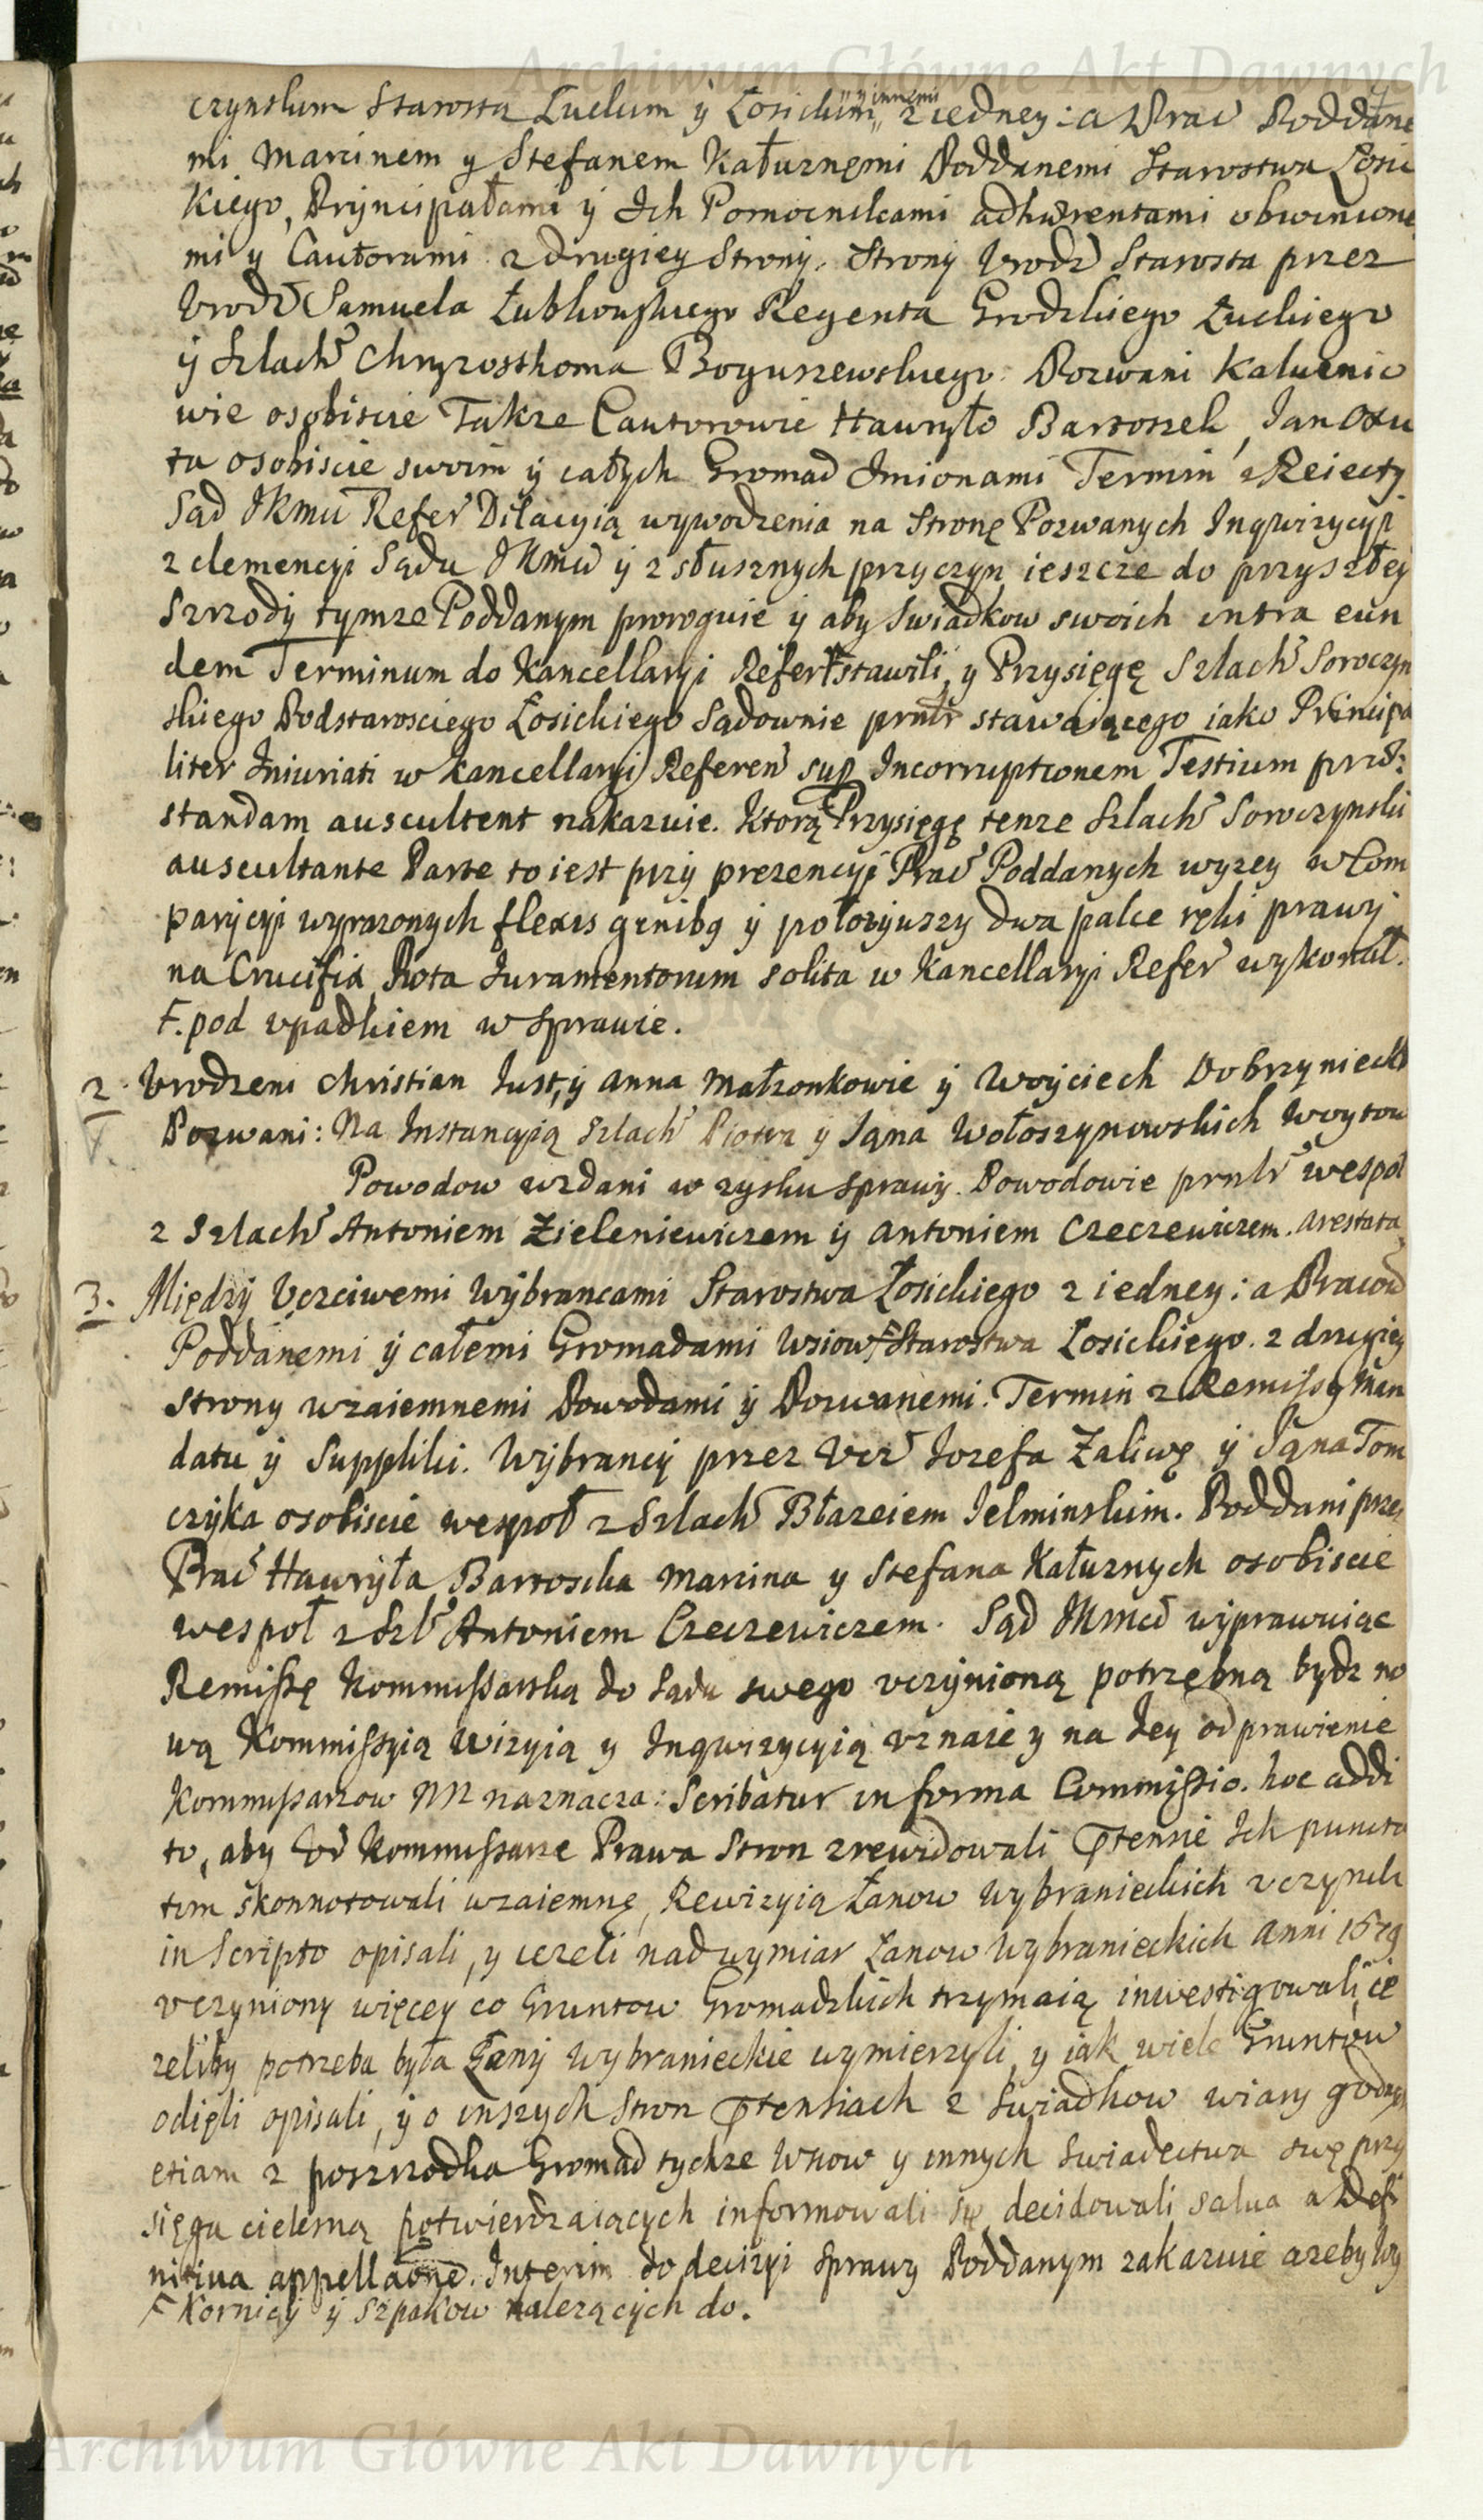 Archiwum Główne Akt Dawnych
czynskim Starostą Łuckim ÿ Łosickim, y innemi z iedney: a Prac Poddane
mi Marcinem y Stefanem Kałuznemi Poddanemi Starostwa Łosic
kiego, Pryncipałami ÿ Ich Pomocnikami adhærentami obwinione
mi y Cautorami z drugiey Strony. Strony Urodz Starosta przez
Urodz Samuela Łubkowskiego Regenta Grodzkiego Łuckiego
ÿ Szlach Chryzosthoma Boguszewskiego. Pozwani Kałuznio
wie osobiscie Takze Cautorowie Hawryło Bartoszek, Jan Oxu
ta osobiscie swoim ÿ całych Gromad Imionami Termin z Reiecty
Sąd JKmci Refer Dilacyią wywodzenia na Stronę Pozwanych Inqwizycyi
z clemencyi Sądu JKmci ÿ z słusznych przyczyn ieszcze do przyszłey
Szrzody tymze Poddanym prorroguie ÿ aby Swiadkow swoich intra eun
dem Terminum do Kancellaryi Refer F stawili, y Przysięgę Szlach Soroczyn
skiego Podstarosciego Łosickiego Sądownie prntr stawaiącego iako Principa
liter Iniuriati w Kancellaryi Referen sup Incorruptionem Testium præ:
standam auscultent nakazuie. Ktorą Przysięgę tenze Szlach Soroczynski
auscultante Parte to iest przÿ prezencyi Prac Poddanych wyzey w Com
parÿcyi wyrazonych flexis genibg ÿ położywszy dwa palce ręki prawy
na Crucifix Rota Juramentorum solita w Kancellaryi Refer wykonał.
F. pod upadkiem w Sprawie.
2. Urodzeni Christian Just, ÿ Anna Małzonkowie ÿ Woÿciech Dobrzyniecki
Pozwani: Na Instancyią Szlach Piotra ÿ Jana Wołoszynowskich Woytow
Powodow wzdani w zysku Sprawy. Powodowie prntr wespoł
z Szlach Antoniem Zieleniewiczem ÿ Antoniem Czeczewiczem. Arestata
3. Międzÿ Uczciwemi Wÿbrancami Starostwa Łosickiego z iedney: a Pracow
Poddanemi ÿ całemi Gromadami Wsiow F Starostwa Łosickiego. z drugiey
Strony wzaiemnemi Powodami ÿ Pozwanemi. Termin z Remissy Man
datu ÿ Suppliki. Wÿbrancÿ przez Ucz Jozefa Zaliwę ÿ Jana Tom
czÿka osobiscie wespoł z Szlach Błazeiem Jelminskim. Poddani przez
Prac Hawrÿła Bartoszka Marcina y Stefana Kałuznych osobiscie
wespoł z Szl Antoniem Czeczewiczem. Sąd JKmci wÿprawuiąc
Remissę Kommissarską do Sądu swego uczÿnioną potrzebną bydz no
wą Kommissyią Wizyią y Inqwizycyią uznaie y na Jey odprawienie
Kommissarzow NN naznacza: Scribatur in forma Commissio. hoc addi
to, aby Kommissarze Prawa Stron zrewidowali Ptensie Ich puncta
tim skonnotowali wzaiemne, Rewizyią Łanow Wybranieckich uczynili
in Scripto opisali, y iezeli nad wymiar Łanow Wybranieckich Anni 1679
uczyniony więcey co Gruntow Gromadzkich trzymaią inwestigowali, ie
zeliby potrzeba była Łany Wybranieckie wymierzyli, y iak wiele Gruntow
odięli opisali, ÿ o inszych Stron Ptensiach z Swiadkow wiary godnych
etiam z poszrzodka Gromad tychze Wsiow y innych Swiadectwa swę przy
sięgą cielesną potwierdzaiących informowali się, decidowali salva a Defi
nitiva appellaone. Interim do decizyi Sprawy Poddanym zakazuie azeby Wy
F Kornicy ÿ Szpakow nalezących do.
Archiwum Główne Akt Dawnych